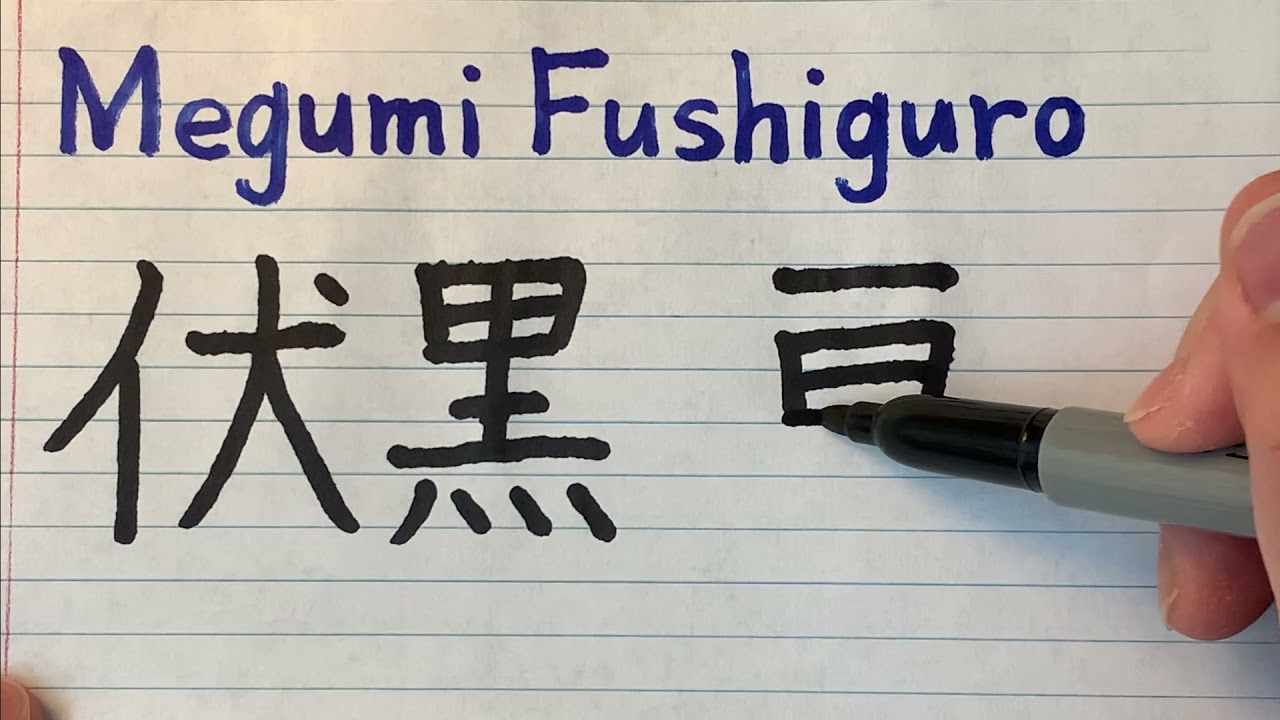 Megumi Fushiguro
伏黒